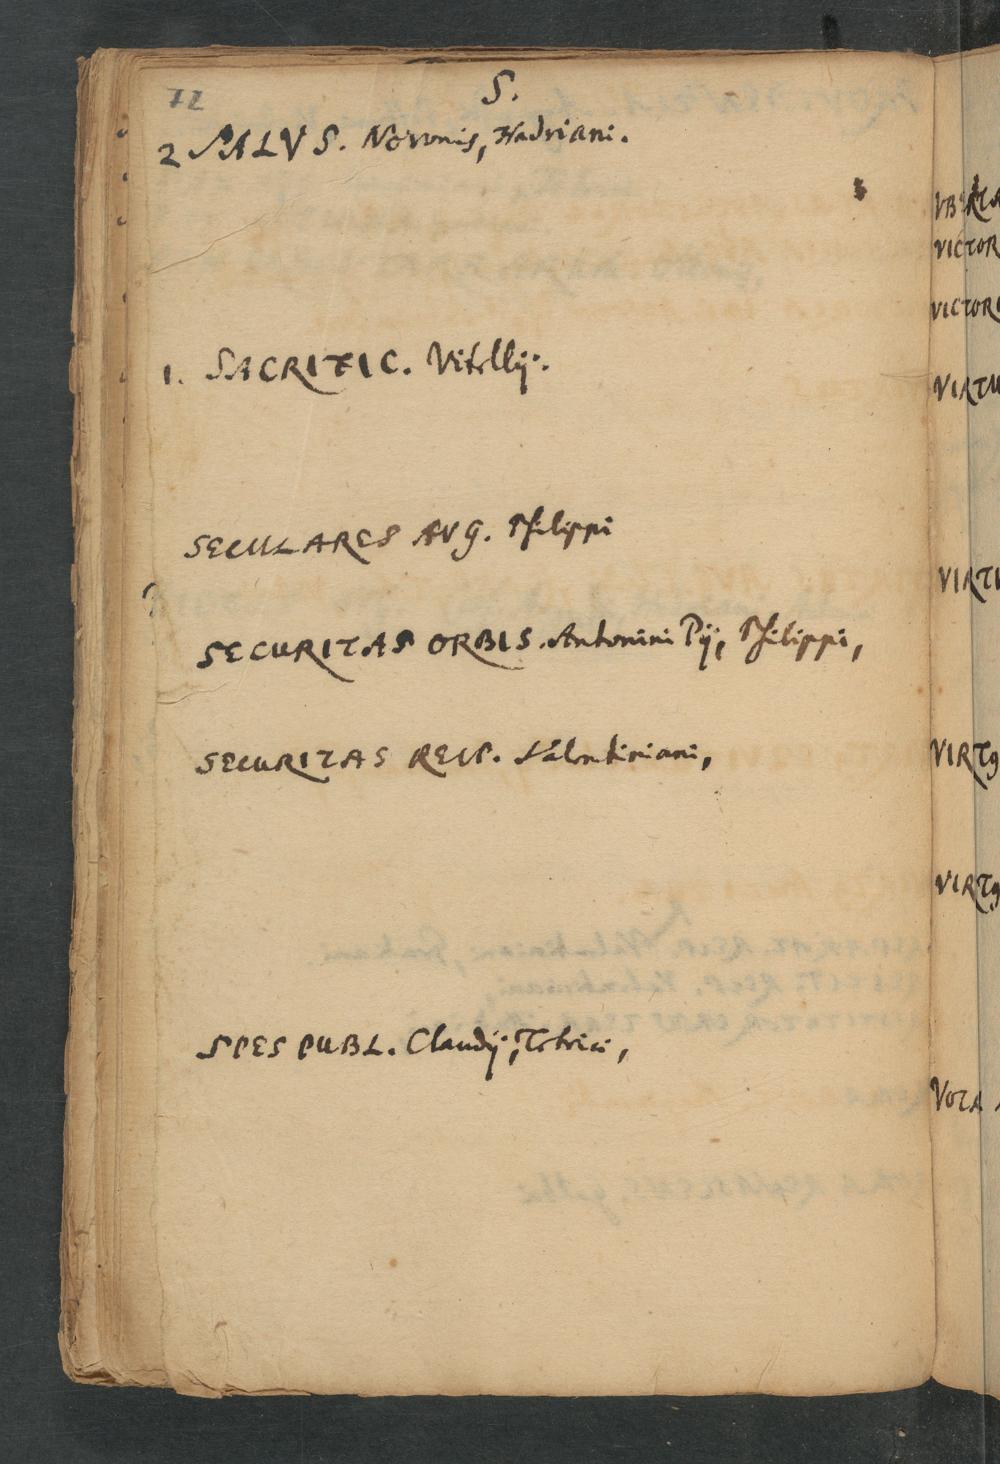 72
S.
2 SALVS. Neronis, Hadriani.
1. SACRIFIC. Vitellij.
SECULARES AVG. Philippi
SECURITAS ORBIS. Antonini Pij, Philippi,
SECURITAS REIP. Valentiniani,
SPES PUBL. Claudij, Tetrici,
VICTOR
VICTORI
VIRTU
VIRTU
VOTA